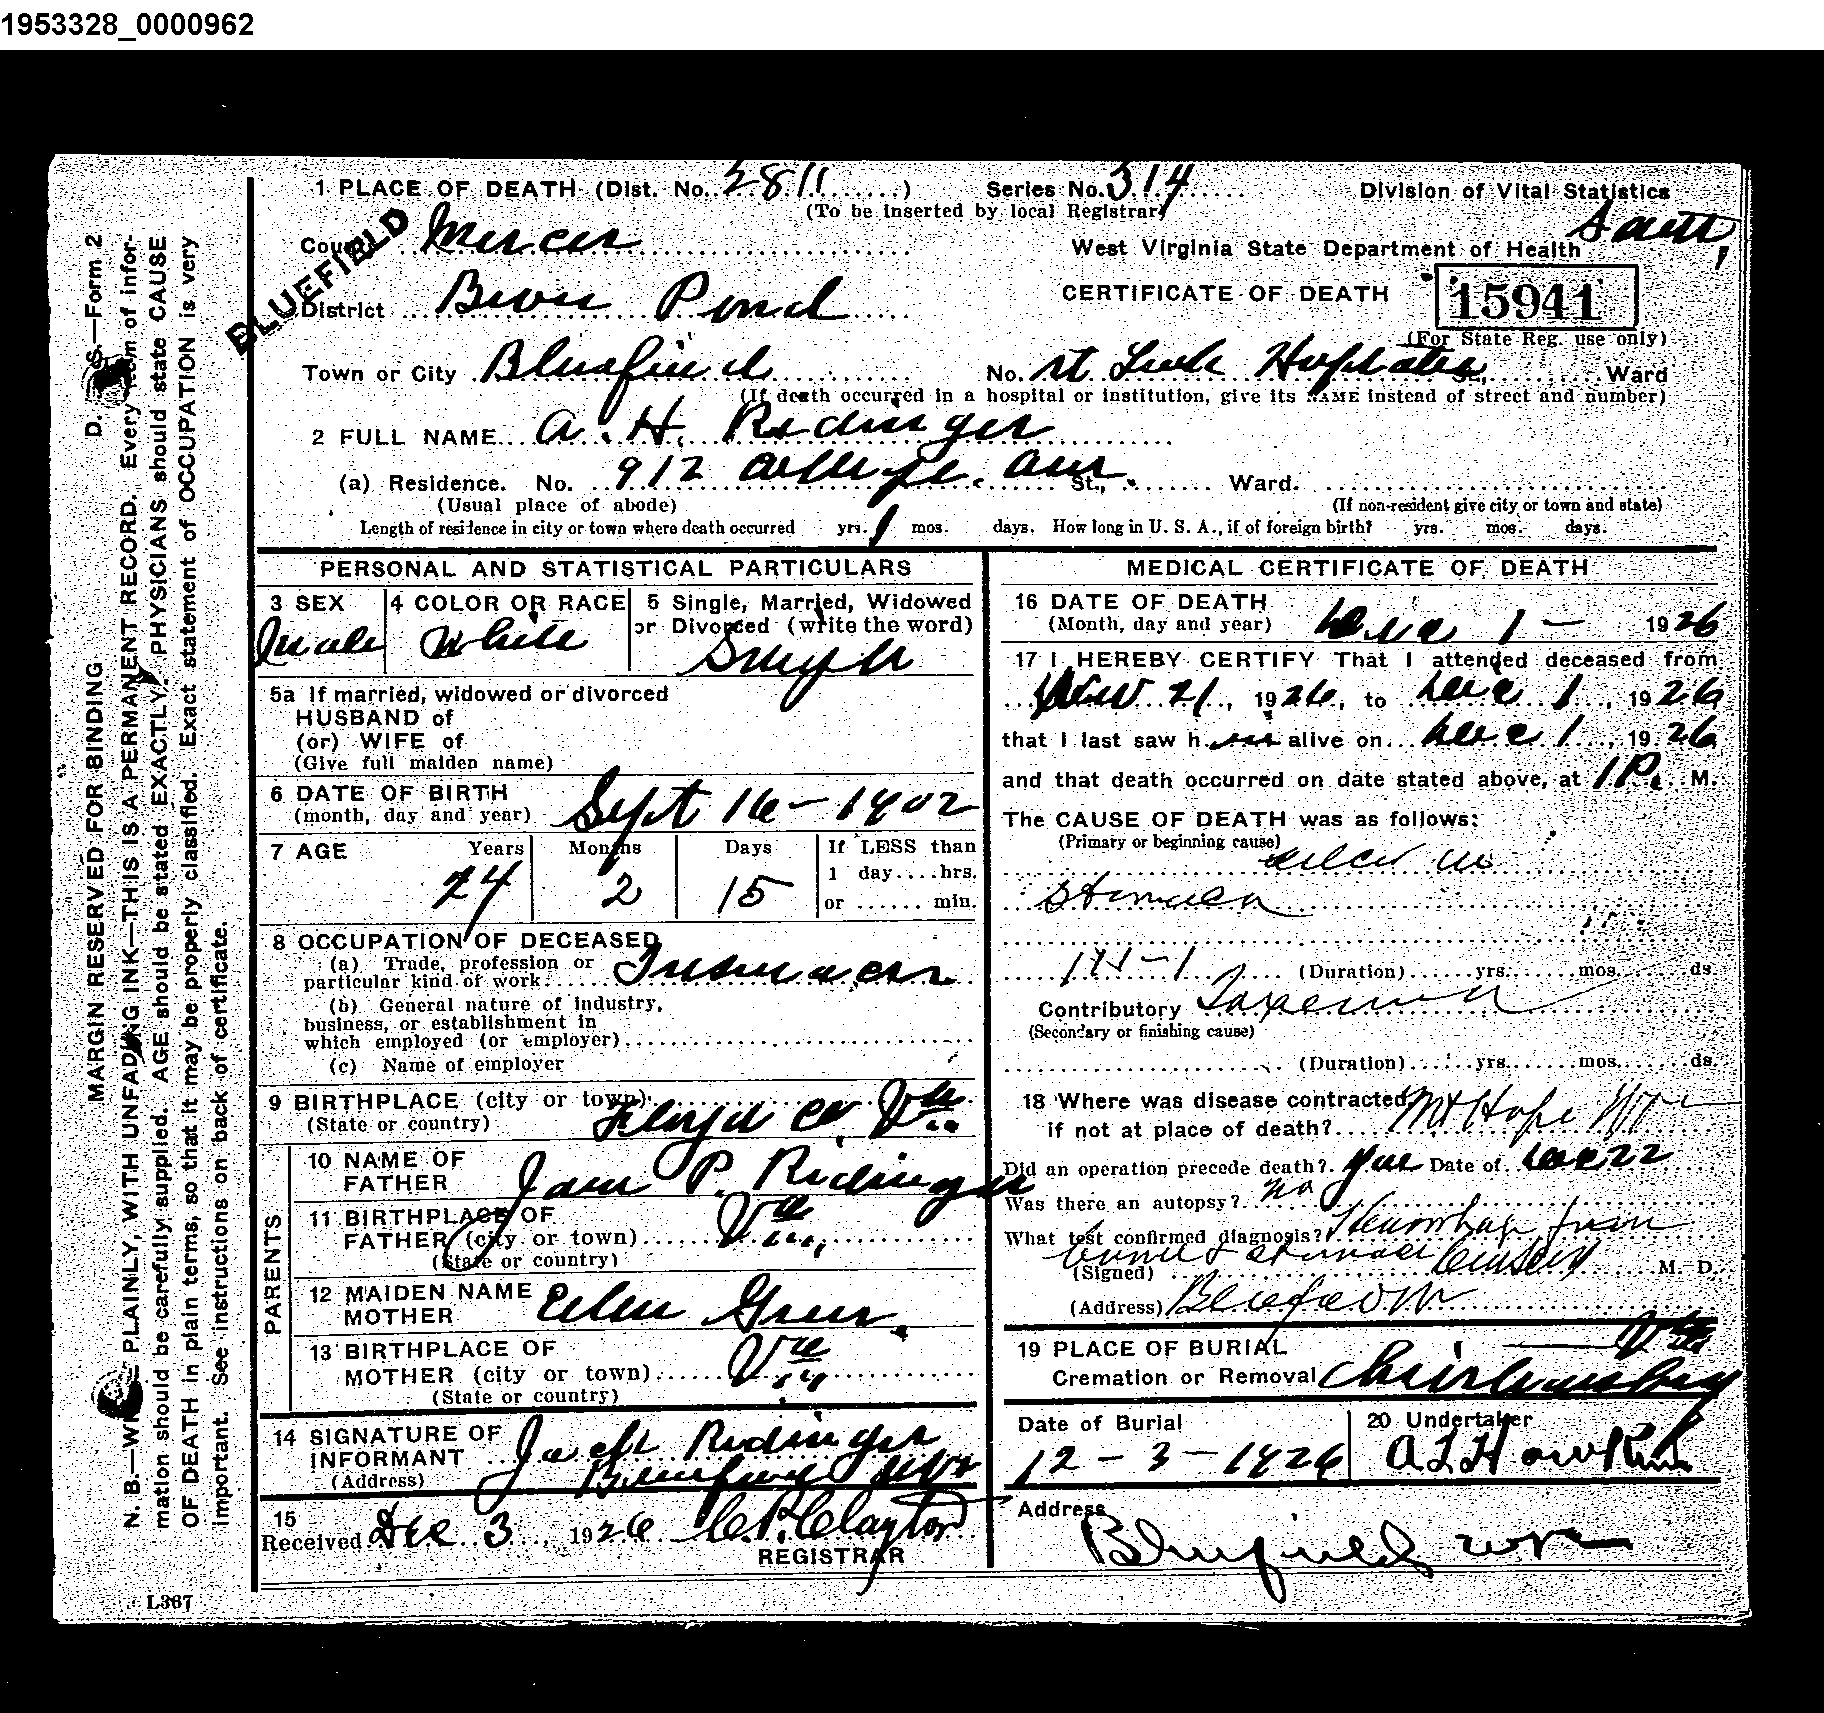 1953328_0000962
1 PLACE OF DEATH (Dist. No. 2811) Series No. 314 Division of Vital Statistics
(To be inserted by local Registrar)
BLUEFIELD
County Mercer West Virginia State Department of Health
District Pond CERTIFICATE OF DEATH 15941
(For State Reg. use only)
Town or City Bluefield No. St Luk St., Ward
(If death occurred in a hospital or institution, give its NAME instead of street and number)
2 FULL NAME A. H. Ridinger
(a) Residence. No. 912 St., Ward.
(Usual place of abode) (If non-resident give city or town and state)
Length of residence in city or town where death occurred yrs. 1 mos. days. How long in U. S. A., if of foreign birth? yrs. mos. days.
PERSONAL AND STATISTICAL PARTICULARS
3 SEX
Male
4 COLOR OR RACE
White
5 Single, Married, Widowed
or Divorced (write the word)
5a If married, widowed or divorced
HUSBAND of
(or) WIFE of
(Give full maiden name)
6 DATE OF BIRTH
(month, day and year) Sept 16 - 1902
7 AGE Years Months Days If LESS than
24 2 15 1 day....hrs.
or ...... min.
8 OCCUPATION OF DECEASED
(a) Trade, profession or
particular kind of work.
(b) General nature of industry,
business, or establishment in
which employed (or employer)
(c) Name of employer
9 BIRTHPLACE (city or town)
(State or country) Floyd Co. Va.
PARENTS
10 NAME OF
FATHER P. Ridinger
11 BIRTHPLACE OF
FATHER (city or town) Va.
(State or country)
12 MAIDEN NAME
MOTHER
13 BIRTHPLACE OF
MOTHER (city or town) Va
(State or country)
14 SIGNATURE OF
INFORMANT Ridinger
(Address)
15
Received Dec 3, 1926 C. P. Clayton
REGISTRAR
MEDICAL CERTIFICATE OF DEATH
16 DATE OF DEATH
(Month, day and year) Dec 1 - 1926
17 I HEREBY CERTIFY That I attended deceased from
Nov 21, 1926, to Dec 1, 1926
that I last saw him alive on Dec 1, 1926
and that death occurred on date stated above, at 1 P. M.
The CAUSE OF DEATH was as follows:
(Primary or beginning cause)
(Duration) yrs. mos. ds.
Contributory
(Secondary or finishing cause)
(Duration) yrs. mos. ds.
18 Where was disease contracted Mt Hope
if not at place of death?
Did an operation precede death? Date of 22
Was there an autopsy? no
What test confirmed diagnosis? from
(Signed) M. D.
(Address)
19 PLACE OF BURIAL Va
Cremation or Removal
Date of Burial
12 - 3 - 1926
20 Undertaker
A L Hawkins
Address
Bluefield
MARGIN RESERVED FOR BINDING D. S.—Form 2
N. B.—WRITE PLAINLY, WITH UNFADING INK—THIS IS A PERMANENT RECORD. Every item of infor-
mation should be carefully supplied. AGE should be stated EXACTLY. PHYSICIANS should state CAUSE
OF DEATH in plain terms, so that it may be properly classified. Exact statement of OCCUPATION is very
important. See instructions on back of certificate.
L367